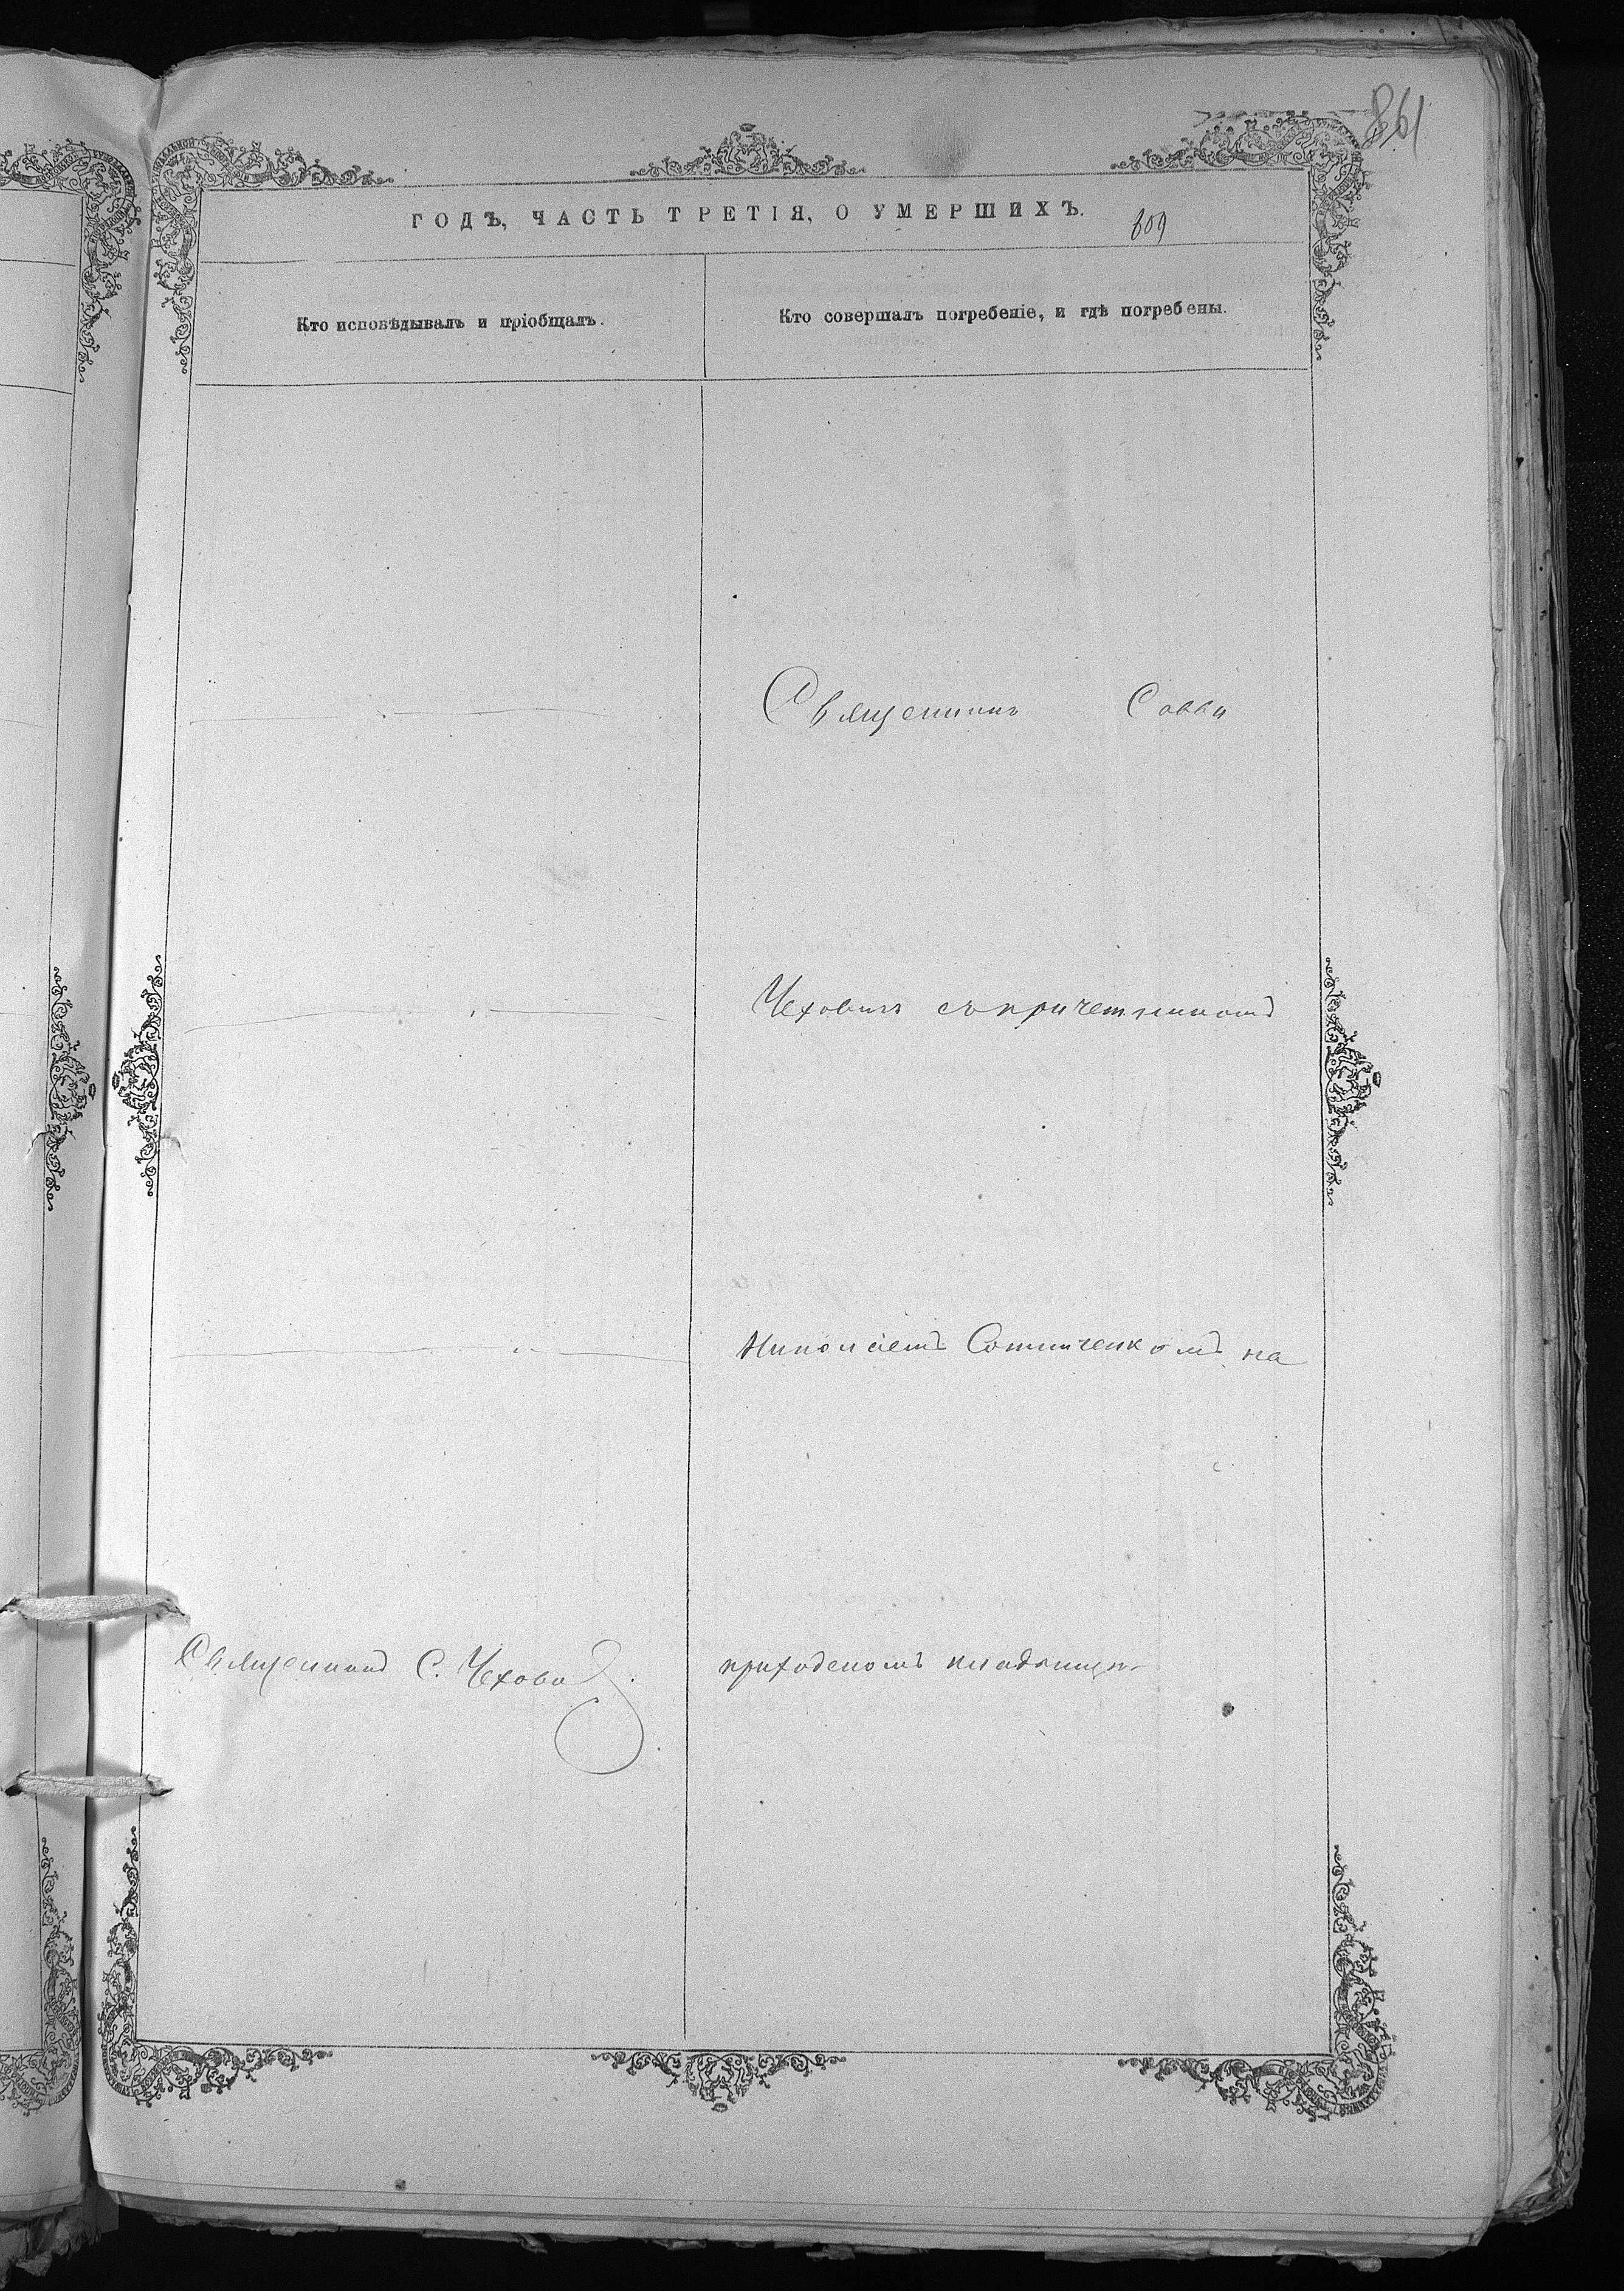 861
ГОДЪ, ЧАСТЬ ТРЕТІЯ, О УМЕРШИХЪ.
809
Кто исповѣдывалъ и пріобщалъ.
Кто совершалъ погребеніе, и гдѣ погребены.
Священникъ Савва
Чеховичъ съ причетникомъ
Николаемъ на
Священникъ С. Чехови
приходскомъ кладбищѣ